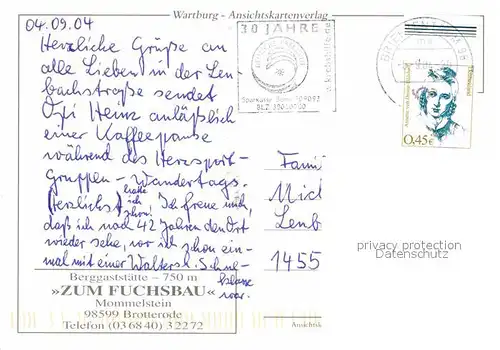 Wartburg - Ansichtskartenverlag
04.09.04
Herzliche Grüße an
alle Lieben in der Len-
bachstraße sendet
Opi Heinz anläßlich
einer Kaffeepause
während des Herzsport-
gruppen - Wandertags.
Herzlichst
hatte
ich
schon! Ich freue mich,
daß ich nach 42 Jahren den Ort
wieder sehe, wor ich schon ein-
mal mit einer Walters
war.
Berggaststätte – 750 m
»ZUM FUCHSBAU«
Mommelstein
98599 Brotterode
Telefon (0 36 8 40) 3 22 72
30 JAHRE
Sparkasse Bonn
BLZ
0,45€
Fami
Mich
Lenb
1455
privacy protection
Datenschutz
Ansichtsk